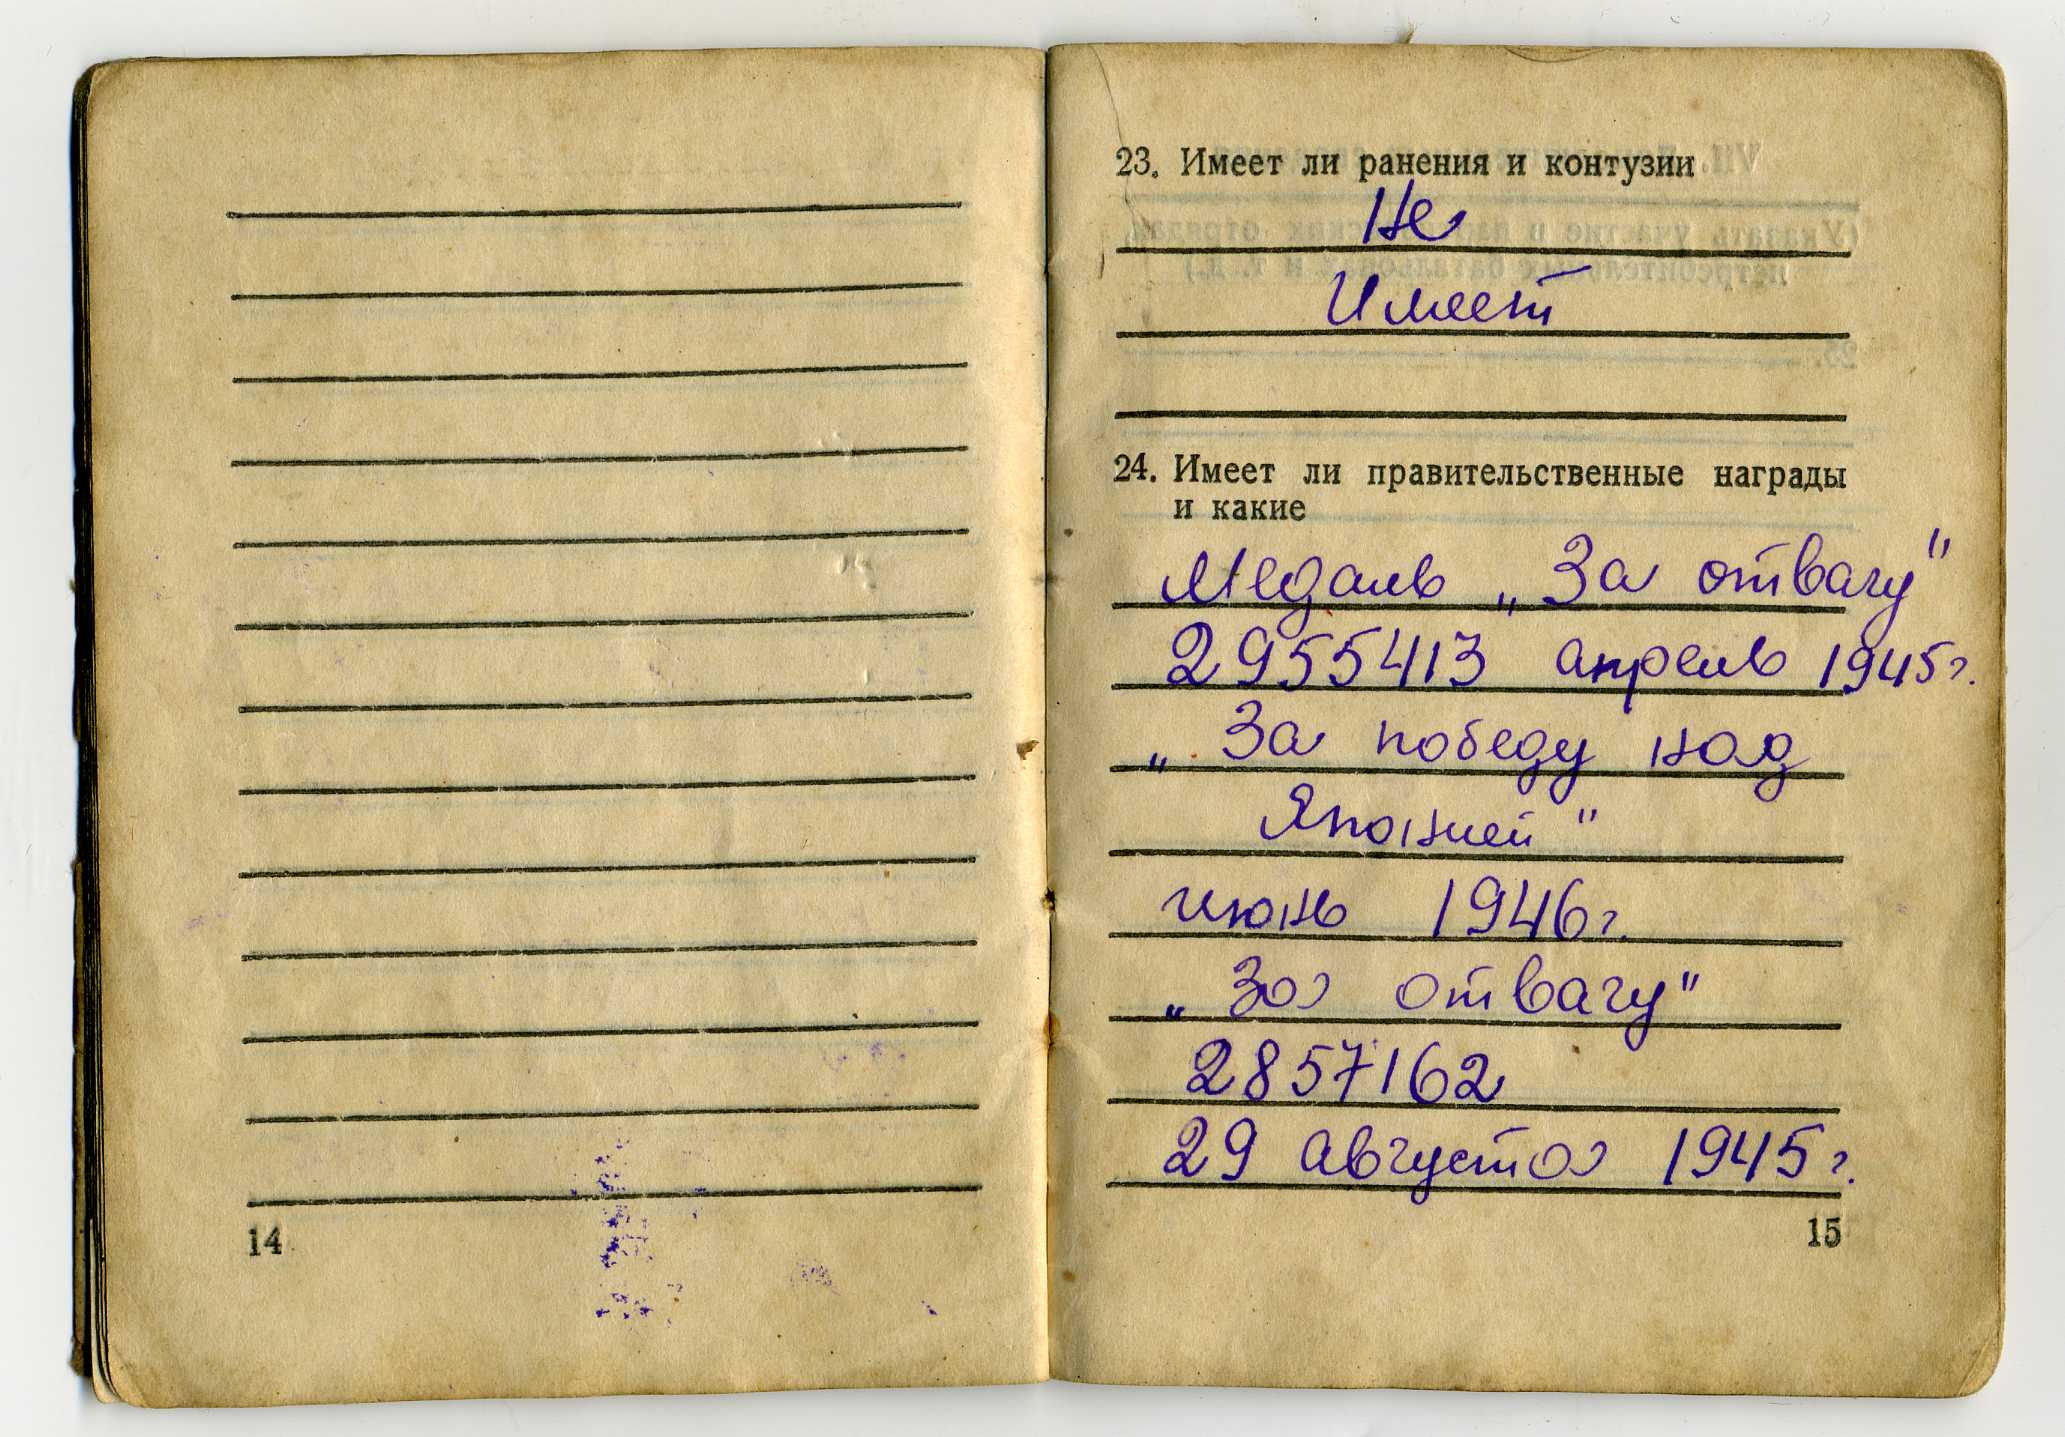 14
23. Имеет ли ранения и контузии
Не
Имеет
24. Имеет ли правительственные награды
и какие
Медаль „За отвагу"
2955413 апрель 1945г.
„За победу над
Японией"
июнь 1946г.
„За отвагу"
2857162
29 августа 1945г.
15